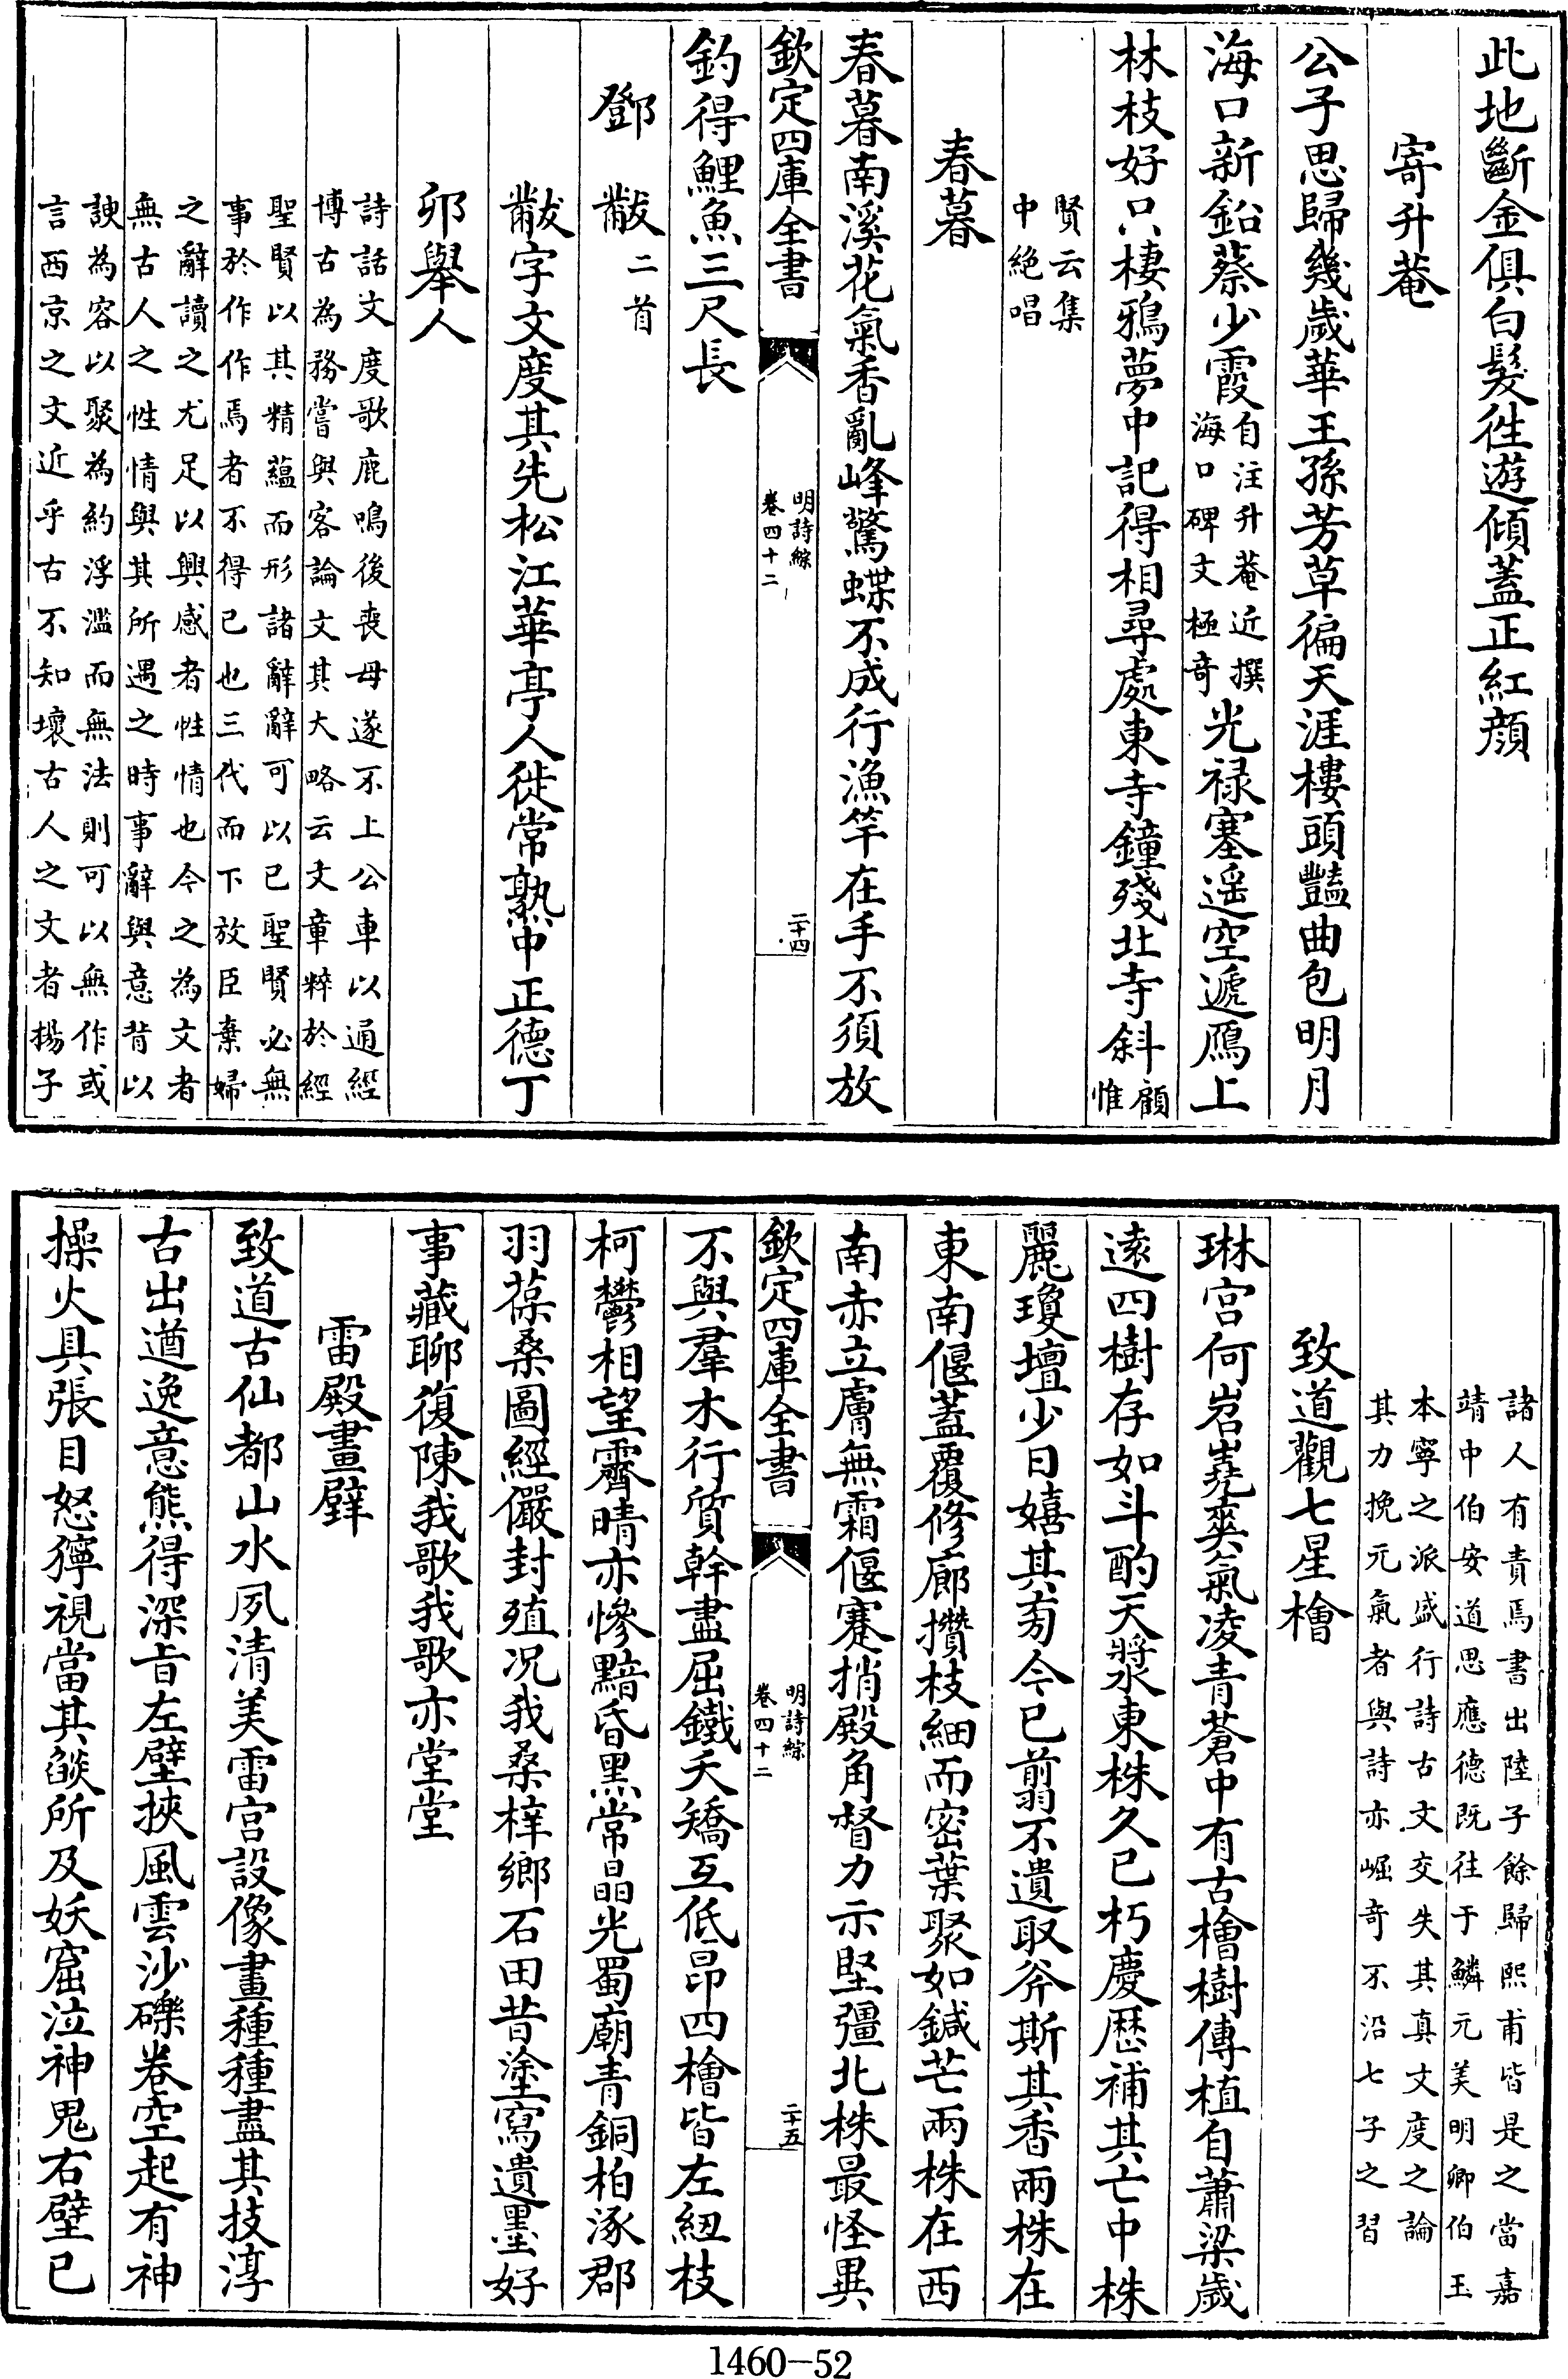 此地斷金俱白髮往遊傾蓋正紅顔
寄升菴
公子思歸幾歲華王孫芳草徧天涯樓頭豔曲包明月
海口新鉛蔡少霞自注升菴近撰海口碑文極奇光禄塞遥空遞鴈上
林枝好只棲鴉夢中記得相尋處東寺鐘殘北寺斜顧惟
賢云集中絶唱
春暮
春暮南溪花氣香亂峰驚蝶不成行漁竿在手不須放
欽定四庫全書 明詩綜卷四十二 二十四
釣得鯉魚三尺長
鄧黻二首
黻字文度其先松江華亭人徙常熟中正德丁
卯舉人
詩話文度歌鹿鳴後喪母遂不上公車以通經
博古為務嘗與客論文其大略云文章粹於經
聖賢以其精藴而形諸辭辭可以已聖賢必無
事於作作焉者不得已也三代而下放臣棄婦
之辭讀之尤足以興感者性情也今之為文者
無古人之性情與其所遇之時事辭與意背以
諛為容以聚為約浮濫而無法則可以無作或
言西京之文近乎古不知壞古人之文者揚子
諸人有責焉書出陸子餘歸熙甫皆是之當嘉
靖中伯安道思應德既往于鱗元美明卿伯玉
本寧之派盛行詩古文交失其真文度之論
其力挽元氣者與詩亦崛奇不沿七子之習
致道觀七星檜
琳宫何岧嶤爽氣凌青蒼中有古檜樹傳植自蕭梁歲
遠四樹存如斗酌天漿東株久已朽慶歴補其亡中株
麗瓊壇少日嬉其旁今已翦不遺取斧斯其香兩株在
東南偃蓋覆修廊攢枝細而密葉聚如鍼芒兩株在西
南赤立膚無霜偃蹇捎殿角督力示堅彊北株最怪異
欽定四庫全書 明詩綜卷四十二 二十五
不與羣木行質幹盡屈鐵夭矯互低昂四檜皆左紐枝
柯鬱相望霽晴亦慘黯昏黑常晶光蜀廟青銅柏涿郡
羽葆桑圖經儼封殖况我桑梓鄉石田昔塗寫遺墨好
事藏聊復陳我歌我歌亦堂堂
雷殿畫壁
致道古仙都山水夙清美雷宫設像畫種種盡其技淳
古出遒逸意熊得深旨左壁挾風雲沙礫卷空起有神
操火具張目怒獰視當其燄所及妖窟泣神鬼右壁已
1460—52